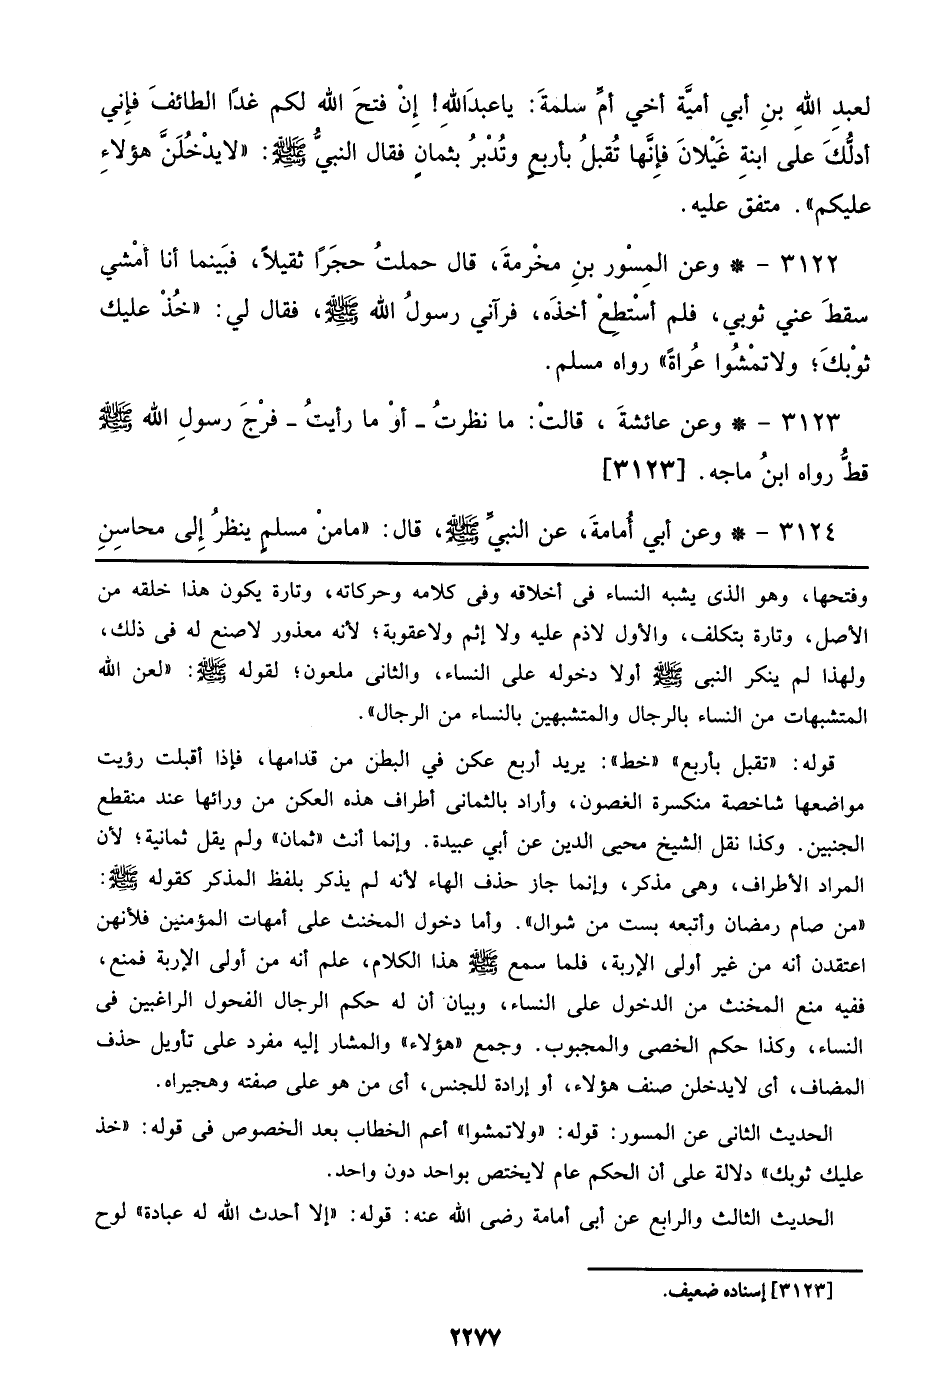 لعبدِ اللهِ بنِ أبي أميَّة أخي أمِّ سلمةَ: ياعبدَاللهِ! إنْ فتحَ الله لكم غدًا الطائفَ فإني
أدلُّكَ على ابنةِ غَيْلانَ فإنَّها تُقبلُ بأربعٍ وتُدْبرُ بثمانٍ فقال النبيُّ ﷺ: «لايدْخُلَنَّ هؤلاءِ
عليكم». متفق عليه.
٣١٢٢ - * وعن المِسْور بنِ مخْرمةَ، قال حملتُ حجَرًا ثقيلاً، فبَينما أنا أمْشي
سقطَ عني ثوبي، فلم أسْتطِعْ أخذَه، فرآني رسولُ الله ﷺ، فقال لي: «خُذْ عليك
ثوْبكَ؛ ولاتمْشُوا عُراةً» رواه مسلم.
٣١٢٣ - * وعن عائشةَ ، قالتْ: ما نظرتُ ـ أوْ ما رأيتُ ـ فرْجَ رسولِ الله ﷺ
قطُّ رواه ابنُ ماجه. [٣١٢٣]
٣١٢٤ - * وعن أبي أُمامةَ، عن النبيِّ ﷺ، قال: «مامنْ مسلمٍ ينظرُ إلى محاسِنِ
وفتحها، وهو الذى يشبه النساء فى أخلاقه وفى كلامه وحركاته، وتارة يكون هذا خلقه من
الأصل، وتارة بتكلف، والأول لاذم عليه ولا إثم ولاعقوبة؛ لأنه معذور لاصنع له فى ذلك،
ولهذا لم ينكر النبى ﷺ أولا دخوله على النساء، والثانى ملعون؛ لقوله ﷺ: «لعن الله
المتشبهات من النساء بالرجال والمتشبهين بالنساء من الرجال».
قوله: «تقبل بأربع» «خط»: يريد أربع عكن في البطن من قدامها، فإذا أقبلت رؤيت
مواضعها شاخصة منكسرة الغصون، وأراد بالثمانى أطراف هذه العكن من ورائها عند منقطع
الجنبين. وكذا نقل الشيخ محيى الدين عن أبي عبيدة. وإنما أنث «ثمان» ولم يقل ثمانية؛ لأن
المراد الأطراف، وهى مذكر، وإنما جاز حذف الهاء لأنه لم يذكر بلفظ المذكر كقوله ﷺ:
«من صام رمضان وأتبعه بست من شوال». وأما دخول المخنث على أمهات المؤمنين فلأنهن
اعتقدن أنه من غير أولى الإربة، فلما سمع ﷺ هذا الكلام، علم أنه من أولى الإربة فمنع،
ففيه منع المخنث من الدخول على النساء، وبيان أن له حكم الرجال الفحول الراغبين فى
النساء، وكذا حكم الخصى والمجبوب. وجمع «هؤلاء» والمشار إليه مفرد على تأويل حذف
المضاف، أى لايدخلن صنف هؤلاء، أو إرادة للجنس، أى من هو على صفته وهجيراه.
الحديث الثانى عن المسور: قوله: «ولاتمشوا» أعم الخطاب بعد الخصوص فى قوله: «خذ
عليك ثوبك» دلالة على أن الحكم عام لايختص بواحد دون واحد.
الحديث الثالث والرابع عن أبى أمامة رضى الله عنه: قوله: «إلا أحدث الله له عبادة» لوح
[٣١٢٣] إسناده ضعيف.
٢٢٧٧